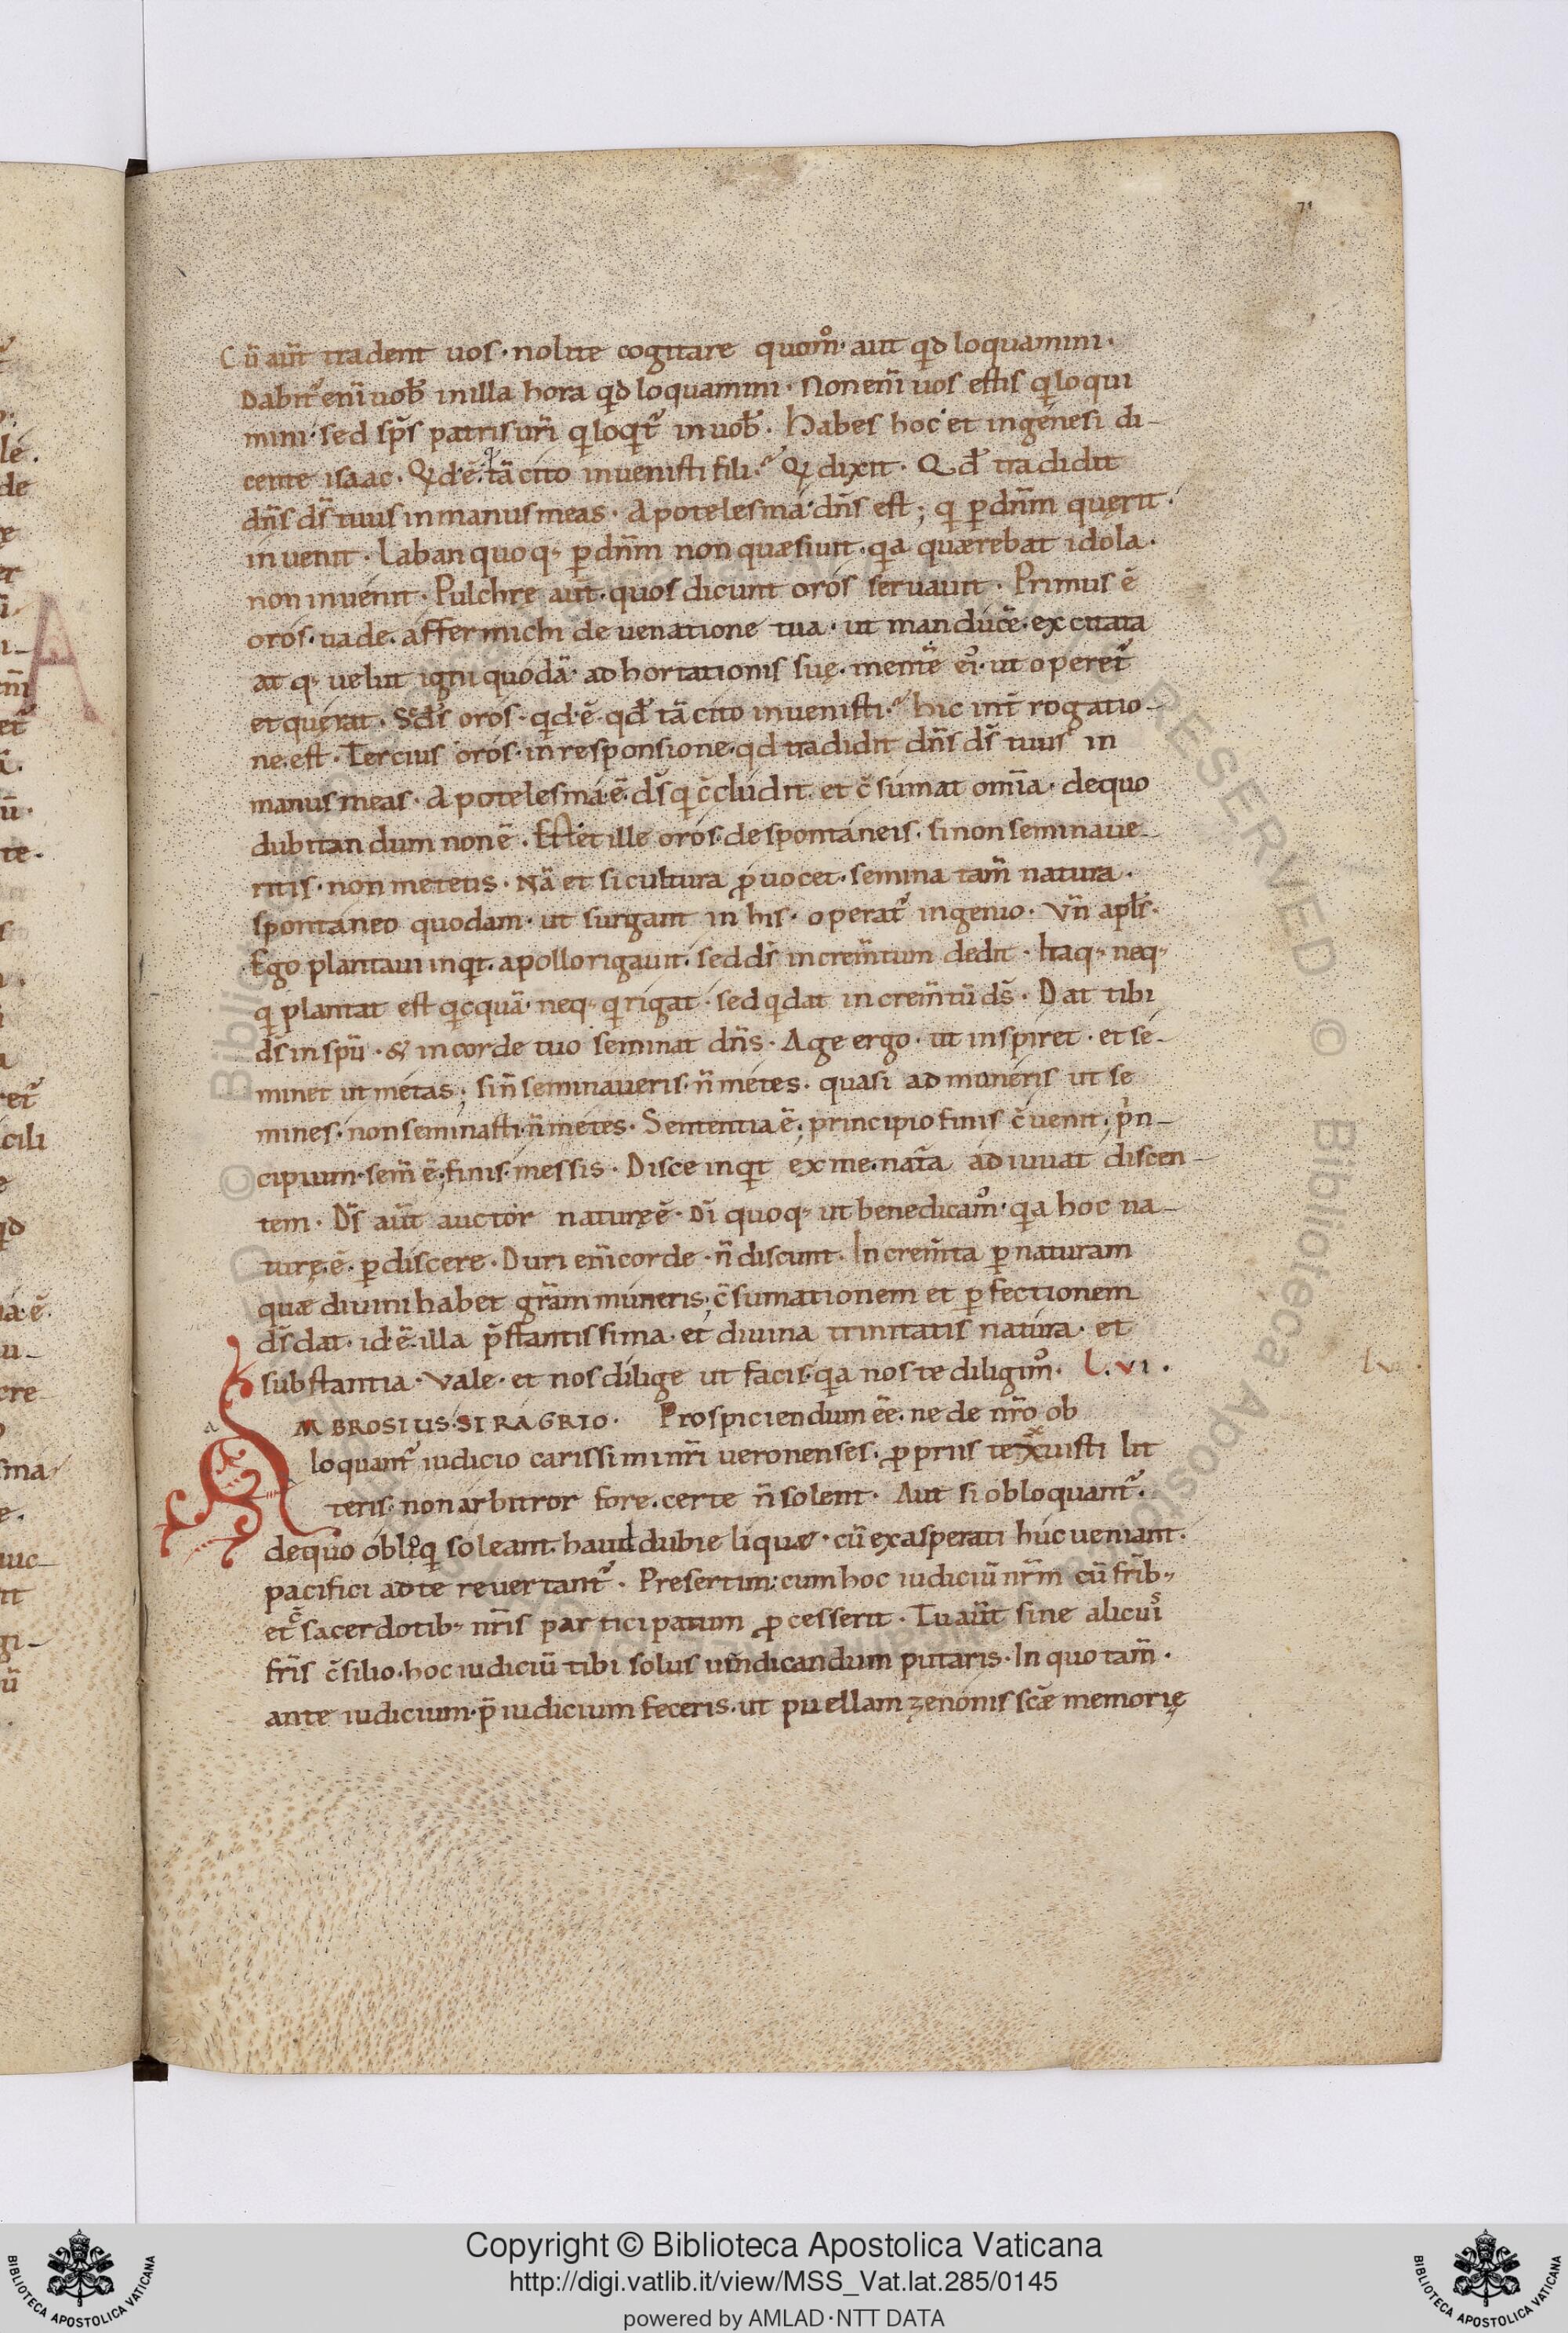 71
Cū aut̄ tradent uos · nolite cogitare quom̊ · aut qd loquamini ·
Dabit᷑ eni uob̄ in illa hora qd loquamini · Non eni uos estis qui loqui
mini · sed sp̄s patris ur̄i qui loqit᷑ in uob̄ · Habes hoc et in genesi di-
cente isaac · Qd ē · q tā cito inuenisti fili · Qi dixit · Qd̄ tradidit
dn̄s ds̄ tuus in manus meas · Apotelesma dn̄s est ; qi p dn̄m querit ·
inuenit · Laban quoq; p dn̄m non quæsiuit · qa quærebat idola ·
non inuenit · Pulchre aut̄ · quos dicunt oros seruauit · Primus ē
oros · uade · affer michi de uenatione tua · ut manducē · excitata
atq; uelut igni quodā · adhortationis suę · mentē ei᷒ · ut operet᷑
et querat · Scd̄s oros · qd · ē · qd̄ tā cito inuenisti · hic int̄rogatio-
ne · est · Tercius oros · in responsione · qd tradidit dn̄s ds̄ tuus in
manus meas · Apotelesma · ē · ds̄ qi c̄cludit · et c̄sumat om̄ia · de quo
dubitandum non ē · Est et ille oros · de spontaneis · si non seminaue-
ritis · non metetis · Nā et si cultura p̄uocet · semina tam̄ natura ·
spontaneo quodam · ut surgant in his · operat᷑ ingenio · Vn̄ apl̄s ·
Ego plantaui inqt · apollo rigauit · sed ds̄ increm̄tum dedit · Itaq; neq;
qi plantat est qicquā · neq; qi rigat · sed qi dat increm̄tū ds̄ · Dat tibi
ds̄ in spū · & in corde tuo seminat dn̄s · Age ergo · ut inspiret · et se-
minet ut metas ; si n̄ seminaueris · n̄ metes · quasi admoneris ut se
mines · non seminasti · n̄ metes · Sententia ē ; principio finis c̄uenit ; pin-
cipium · sem̄ ē ; finis · messis · Disce inqt ex me · nat̄a adiuuat discen-
tem · Ds̄ aut̄ auctor naturę ē · Di quoq; ut bene dicam᷒ · qa hoc na-
turę · ē · p discere · Duri eni corde · n̄ discunt · Increm̄ta p naturam
quæ diuini habet gr̄am muneris ; c̄sumationem et pfectionem
ds̄ dat · id · ē · illa p̄stantissima · et diuina trinitatis natura · et
substantia · Vale · et nos dilige ut facis · qa nos te diligim᷒ · L · VI ·
AMBROSIUS · SIRAGRIO · Prospiciendum ēē · ne de nr̄o ob
loquant᷑ iudicio carissimi nr̄i ueronenses · p̄priis texuisti lit
teris · non arbitror fore · certe n̄ solent · Aut si obloquant᷑ ·
de quo obl̄qi soleant · haud dubie liquæ · cū exasperati huc ueniant ·
pacifici ad te reuertant᷑ · Presertim : cum hoc iudiciū nr̄m cū frib;
et sacerdotib; nr̄is participatum p̄cesserit · Tu aut̄ sine alicui᷒
fr̄is c̄silio · hoc iudiciū tibi solus uindicandum putaris · In quo tam̄ ·
ante iudicium · p̄iudicium feceris · ut puellam zenonis sc̄æ memorię
Copyright © Biblioteca Apostolica Vaticana
http://digi.vatlib.it/view/MSS_Vat.lat.285/0145
powered by AMLAD·NTT DATA
BIBLIOTECA APOSTOLICA VATICANA
BIBLIOTECA APOSTOLICA VATICANA